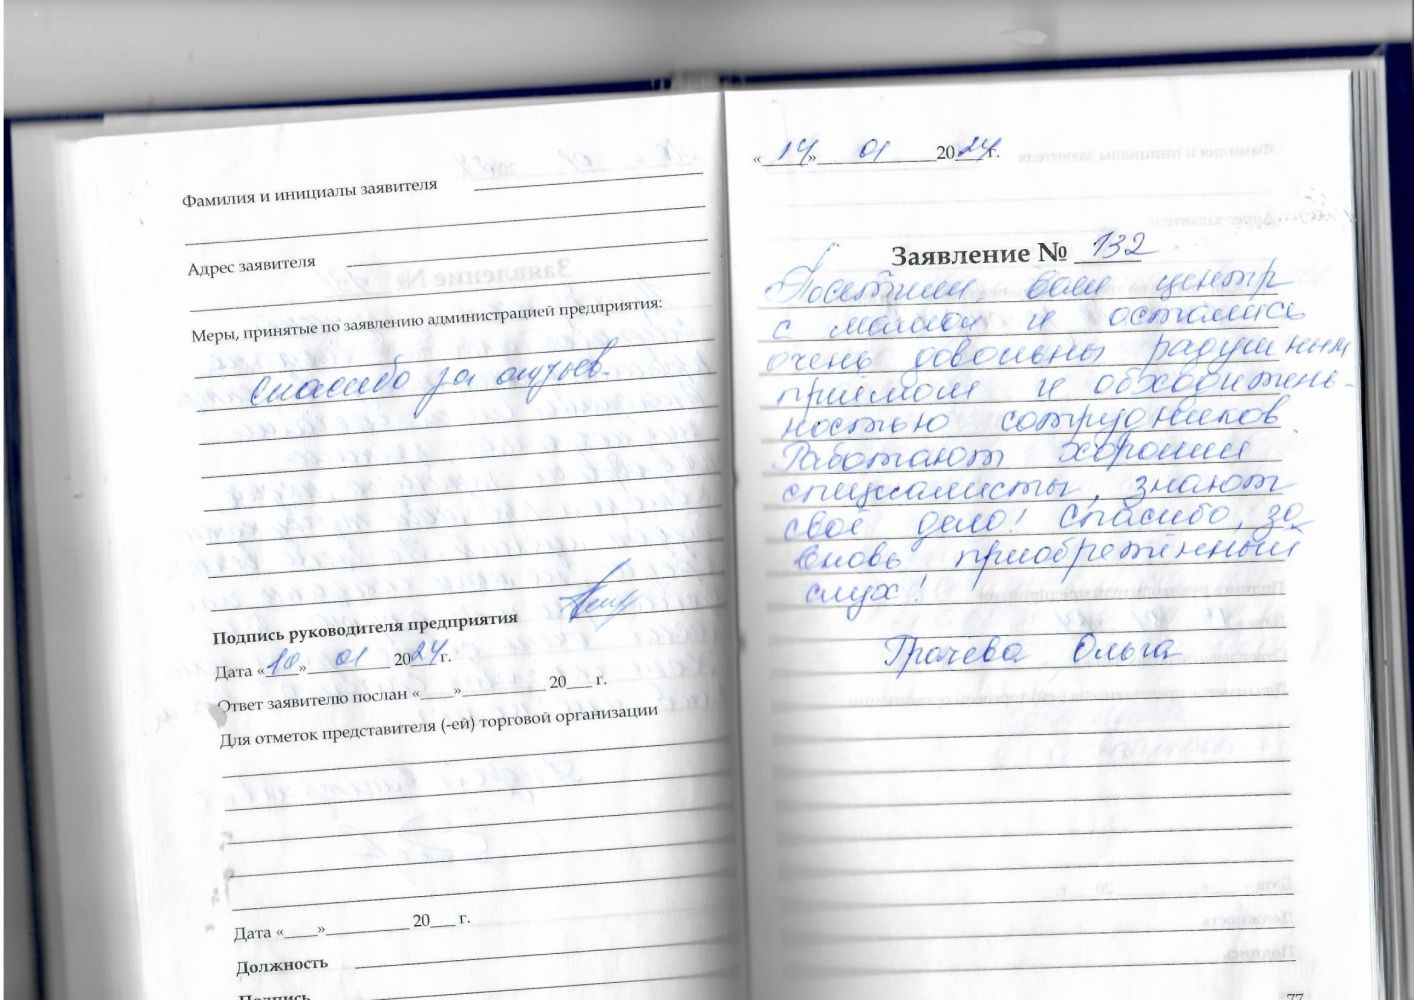 Фамилия и инициалы заявителя
Адрес заявителя
Меры, принятые по заявлению администрацией предприятия:
Спасибо за отзыв.
Подпись руководителя предприятия
Дата «10» 01 2024г.
Ответ заявителю послан «____»__________ 20___ г.
Для отметок представителя (-ей) торговой организации
Дата «____»__________ 20___ г.
Должность
Подпись
«14» 01 2024г.
Заявление № 132
Посетили ваш центр
с мамой и остались
очень довольны радушным
приёмом и обходитель-
ностью сотрудников.
Работают хорошие
специалисты, знают
своё дело! Спасибо, за
вновь приобретённый
слух!
Грачева Ольга
77